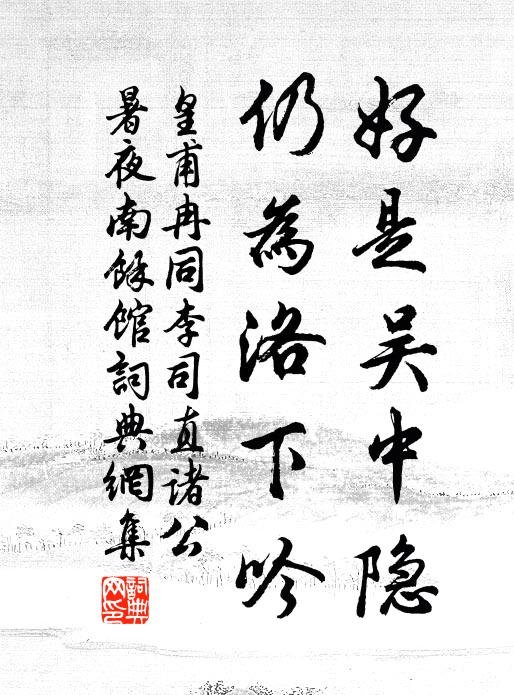 好是吴中隐
仍為洛下吟
皇甫冉同李司直諸公
暑夜南餘馆詞典網集
詞典
网印